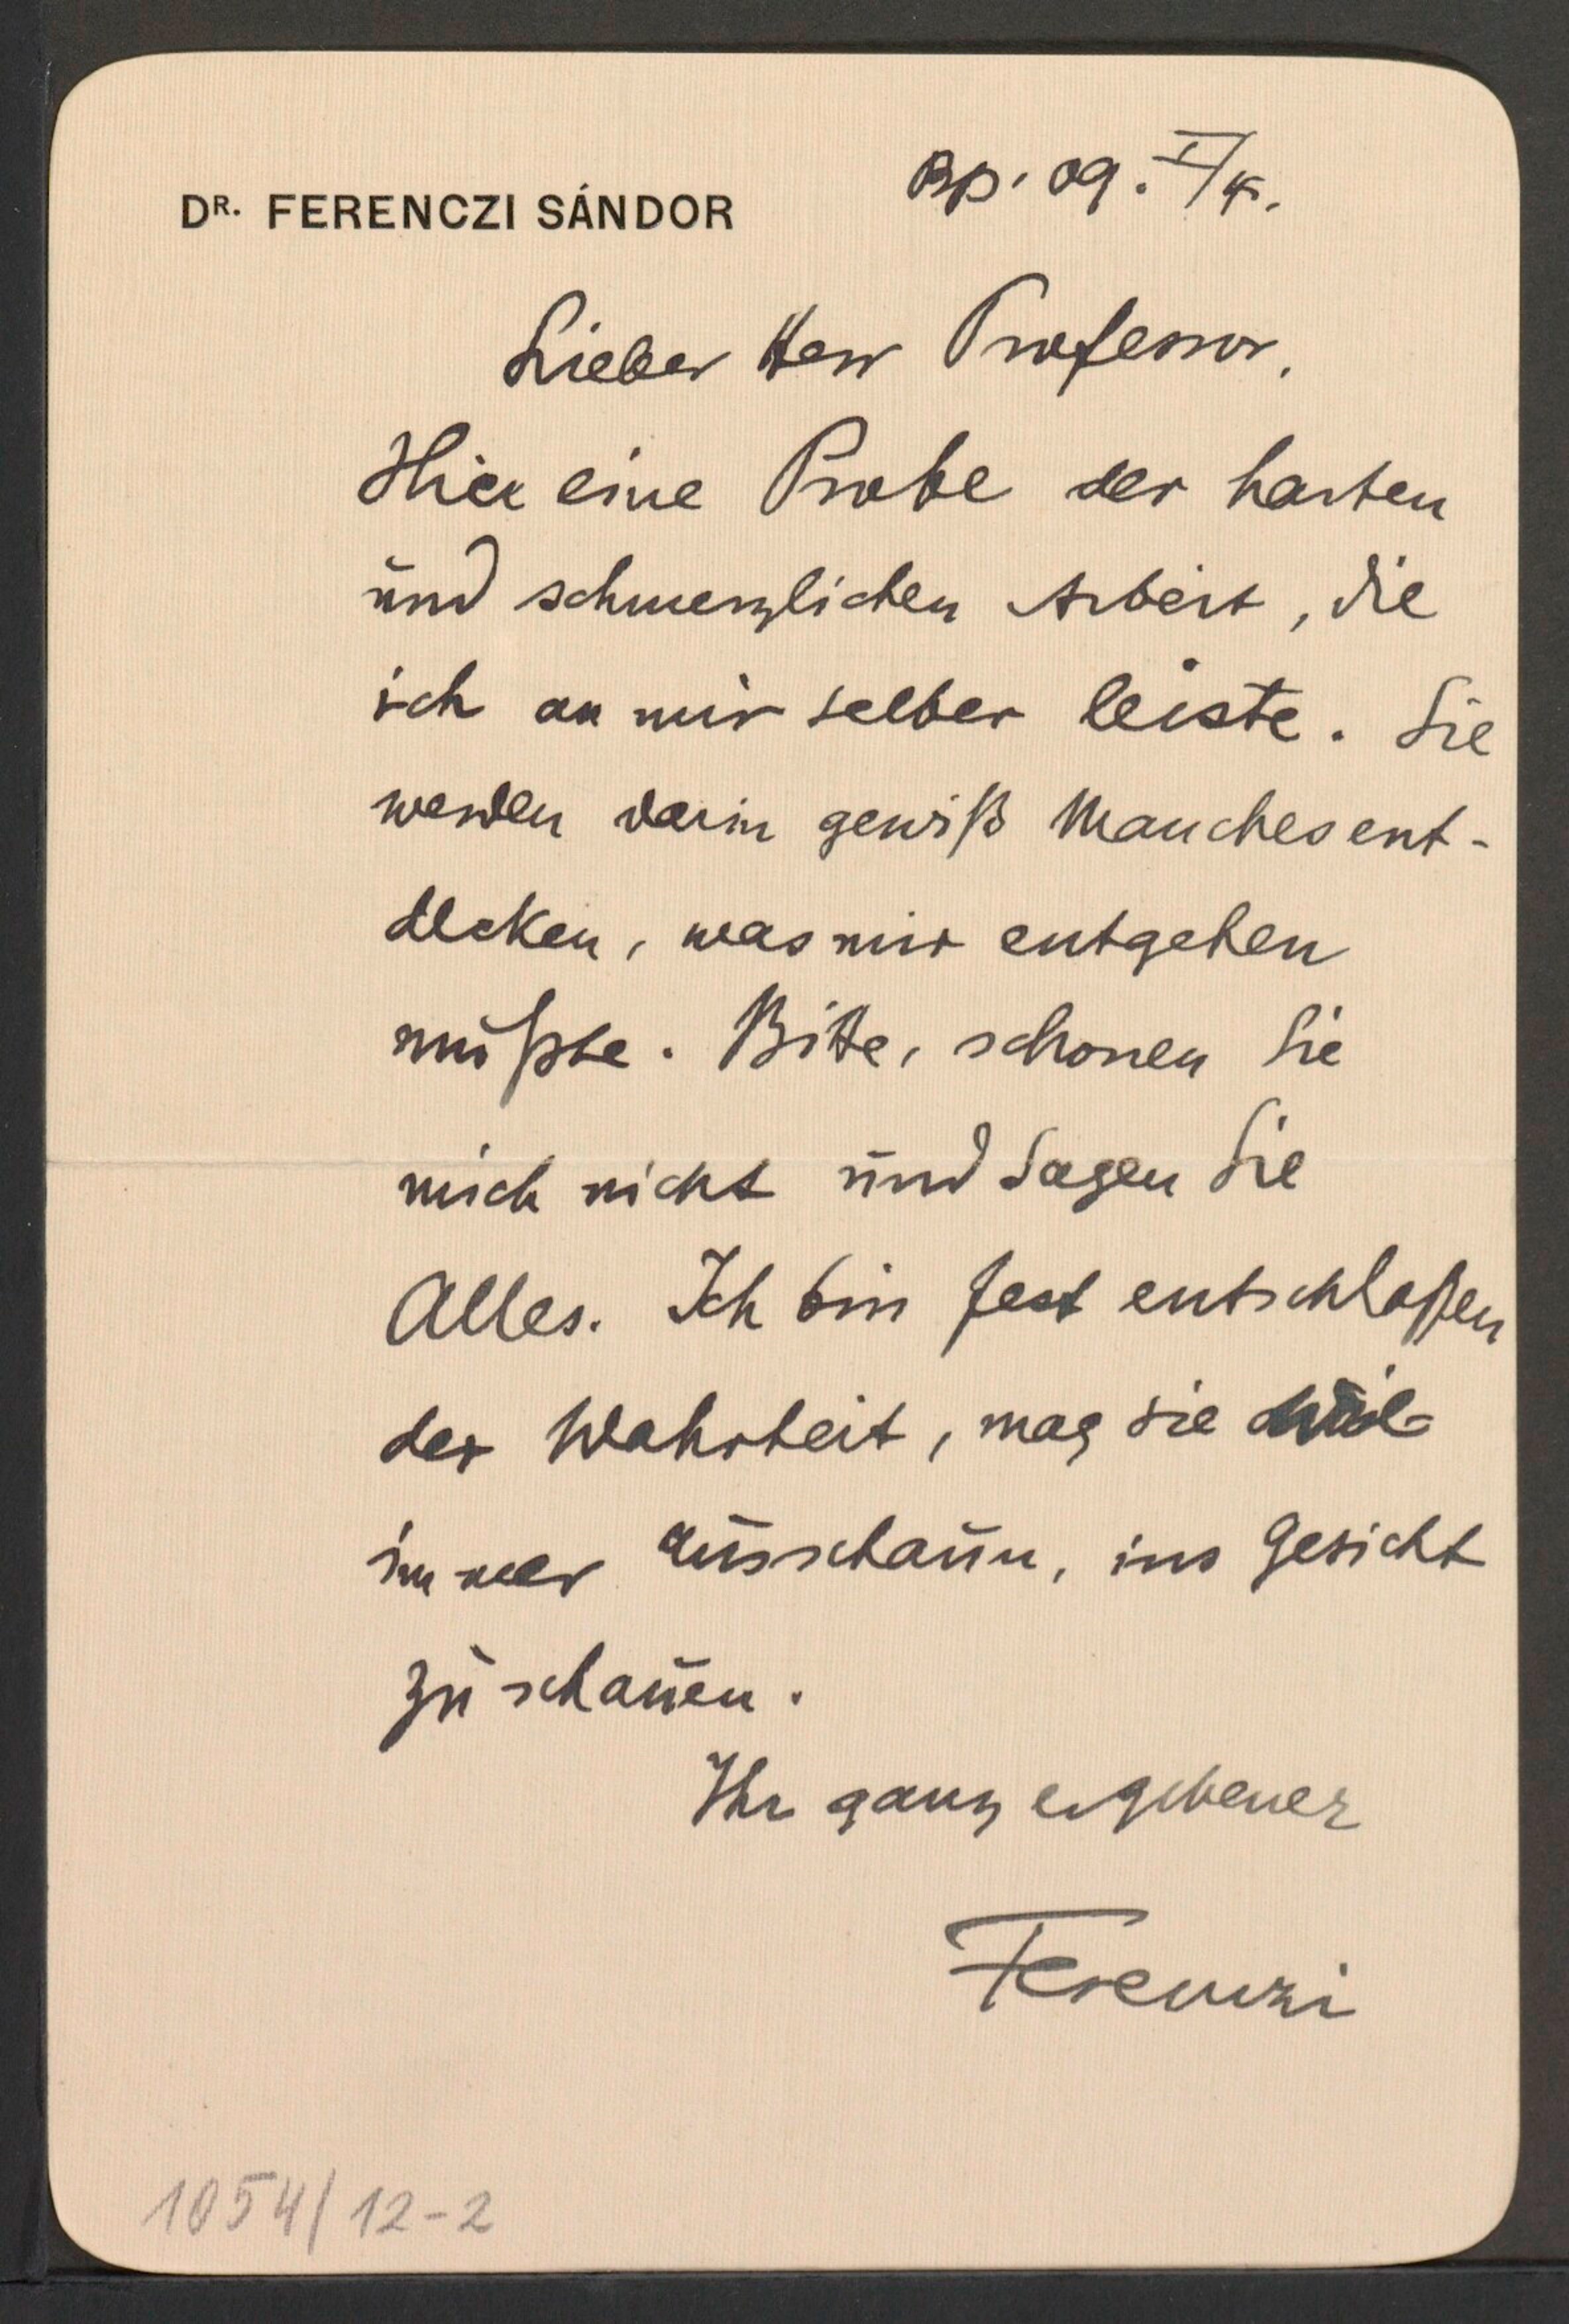 DR. FERENCZI SÁNDOR
Bp. 09. I/4.
Lieber Herr Professor,
Hier eine Probe der harten
und schmerzlichen Arbeit, die
ich an mir selber leiste. Sie
werden darin gewiß Manches ent-
decken, was mir entgehen
mußte. Bitte, schonen Sie
mich nicht und sagen Sie
Alles. Ich bin fest entschloßen
der Wahrheit, mag sie wie
immer ausschaun, ins Gesicht
zu schauen.
Ihr ganz ergebener
Ferenczi
1054/12-2